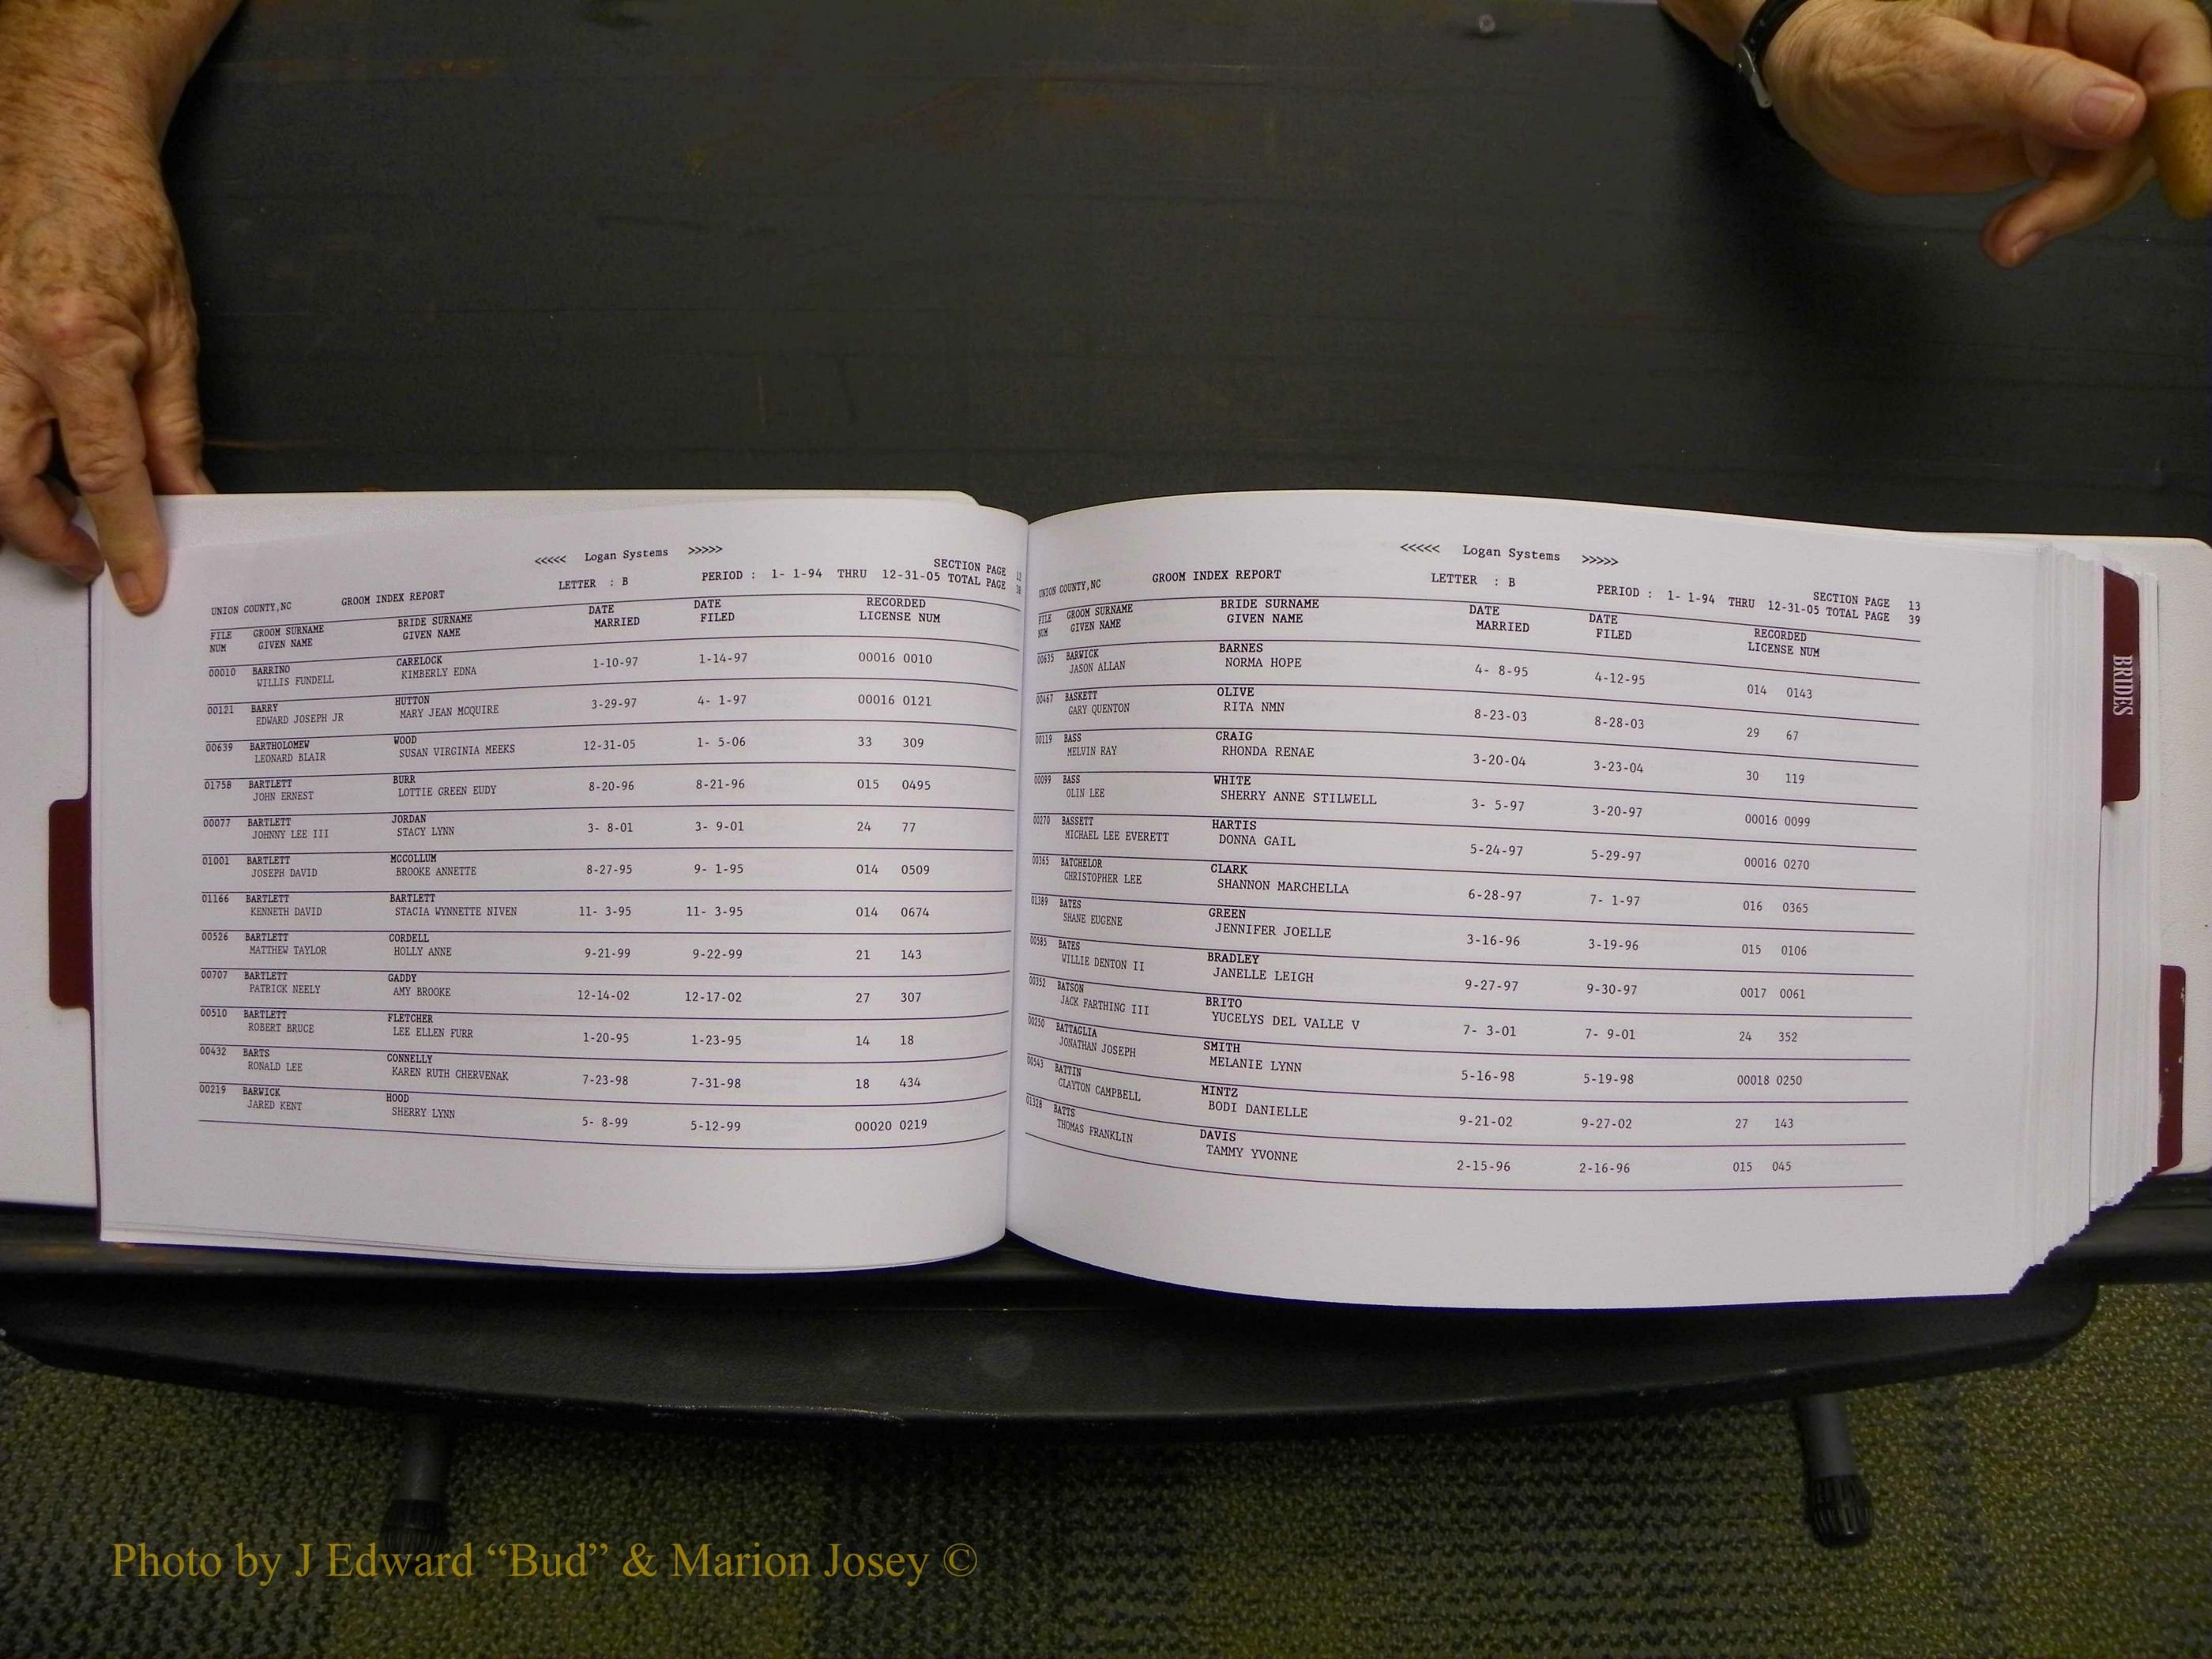 <<<<< Logan Systems >>>>>
UNION COUNTY,NC GROOM INDEX REPORT LETTER : B PERIOD : 1- 1-94 THRU 12-31-05 SECTION PAGE
TOTAL PAGE
FILE GROOM SURNAME BRIDE SURNAME DATE DATE RECORDED
NUM GIVEN NAME GIVEN NAME MARRIED FILED LICENSE NUM
00010 BARRINO CARELOCK 1-10-97 1-14-97 00016 0010
WILLIS FUNDELL KIMBERLY EDNA
00121 BARRY HUTTON 3-29-97 4- 1-97 00016 0121
EDWARD JOSEPH JR MARY JEAN MCQUIRE
00639 BARTHOLOMEW WOOD 12-31-05 1- 5-06 33 309
LEONARD BLAIR SUSAN VIRGINIA MEEKS
01758 BARTLETT BURR 8-20-96 8-21-96 015 0495
JOHN ERNEST LOTTIE GREEN EUDY
00077 BARTLETT JORDAN 3- 8-01 3- 9-01 24 77
JOHNNY LEE III STACY LYNN
01001 BARTLETT MCCOLLUM 8-27-95 9- 1-95 014 0509
JOSEPH DAVID BROOKE ANNETTE
01166 BARTLETT BARTLETT 11- 3-95 11- 3-95 014 0674
KENNETH DAVID STACIA WYNNETTE NIVEN
00526 BARTLETT CORDELL 9-21-99 9-22-99 21 143
MATTHEW TAYLOR HOLLY ANNE
00707 BARTLETT GADDY 12-14-02 12-17-02 27 307
PATRICK NEELY AMY BROOKE
00510 BARTLETT FLETCHER 1-20-95 1-23-95 14 18
ROBERT BRUCE LEE ELLEN FURR
00432 BARTS CONNELLY 7-23-98 7-31-98 18 434
RONALD LEE KAREN RUTH CHERVENAK
00219 BARWICK HOOD 5- 8-99 5-12-99 00020 0219
JARED KENT SHERRY LYNN
<<<<< Logan Systems >>>>>
UNION COUNTY,NC GROOM INDEX REPORT LETTER : B PERIOD : 1- 1-94 THRU 12-31-05 SECTION PAGE 13
TOTAL PAGE 39
FILE GROOM SURNAME BRIDE SURNAME DATE DATE RECORDED
NUM GIVEN NAME GIVEN NAME MARRIED FILED LICENSE NUM
00635 BARWICK BARNES 4- 8-95 4-12-95 014 0143
JASON ALLAN NORMA HOPE
00467 BASKETT OLIVE 8-23-03 8-28-03 29 67
GARY QUENTON RITA NMN
00119 BASS CRAIG 3-20-04 3-23-04 30 119
MELVIN RAY RHONDA RENAE
00099 BASS WHITE 3- 5-97 3-20-97 00016 0099
OLIN LEE SHERRY ANNE STILWELL
00270 BASSETT HARTIS 5-24-97 5-29-97 00016 0270
MICHAEL LEE EVERETT DONNA GAIL
00365 BATCHELOR CLARK 6-28-97 7- 1-97 016 0365
CHRISTOPHER LEE SHANNON MARCHELLA
01389 BATES GREEN 3-16-96 3-19-96 015 0106
SHANE EUGENE JENNIFER JOELLE
00585 BATES BRADLEY 9-27-97 9-30-97 0017 0061
WILLIE DENTON II JANELLE LEIGH
00352 BATSON BRITO 7- 3-01 7- 9-01 24 352
JACK FARTHING III YUCELYS DEL VALLE V
00250 BATTAGLIA SMITH 5-16-98 5-19-98 00018 0250
JONATHAN JOSEPH MELANIE LYNN
00543 BATTIN MINTZ 9-21-02 9-27-02 27 143
CLAYTON CAMPBELL BODI DANIELLE
01328 BATTS DAVIS 2-15-96 2-16-96 015 045
THOMAS FRANKLIN TAMMY YVONNE
BRIDES
Photo by J Edward “Bud” & Marion Josey ©